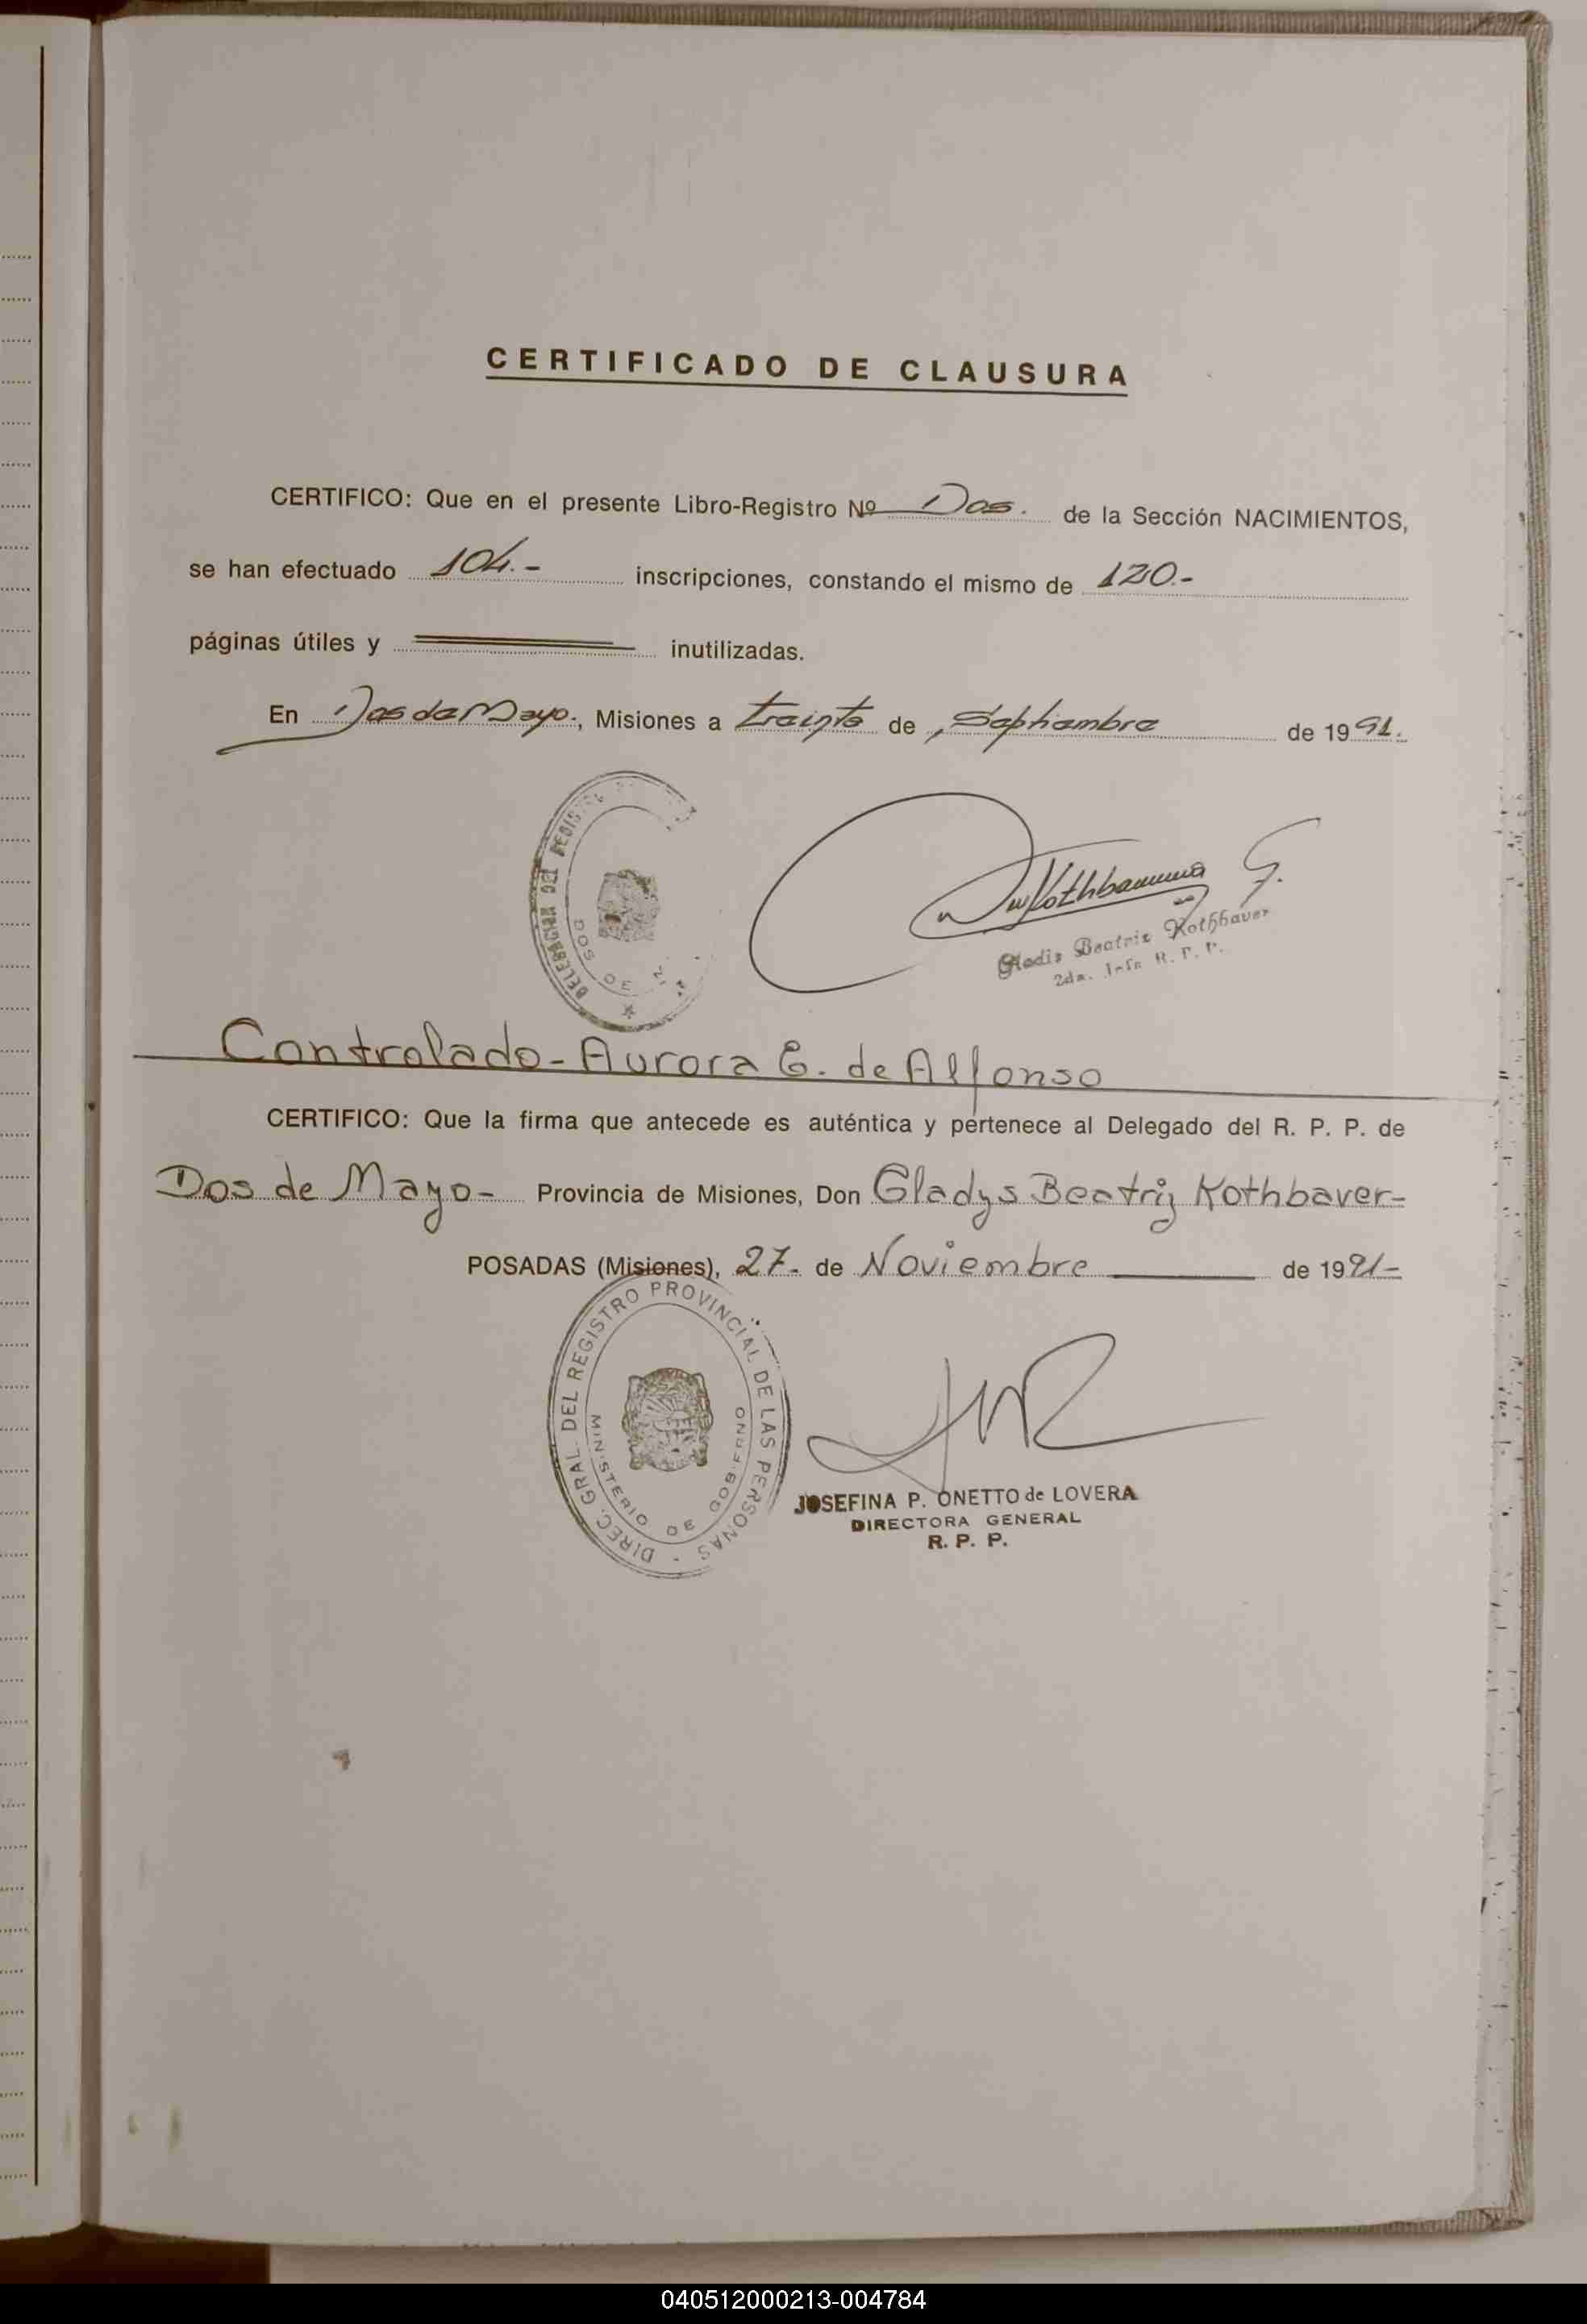 CERTIFICADO DE CLAUSURA
CERTIFICO: Que en el presente Libro-Registro Nº Dos. de la Sección NACIMIENTOS,
se han efectuado 104.- inscripciones, constando el mismo de 120.-
páginas útiles y inutilizadas.
En Dos de Mayo., Misiones a treinta de Septiembre de 1991.
DELEGACION DEL REGIST
DOS DE
Kothbauer G.
Gladis Beatriz Kothbauer
2da. Jefe R. P. P.
Controlado - Aurora E. de Alfonso
CERTIFICO: Que la firma que antecede es auténtica y pertenece al Delegado del R. P. P. de
Dos de Mayo- Provincia de Misiones, Don Gladys Beatriz Kothbaver-
POSADAS (Misiones), 27- de Noviembre de 1991-
DIREC. GRAL. DEL REGISTRO PROVINCIAL DE LAS PERSONAS -
MINISTERIO DE GOBIERNO
JOSEFINA P. ONETTO de LOVERA
DIRECTORA GENERAL
R. P. P.
040512000213-004784